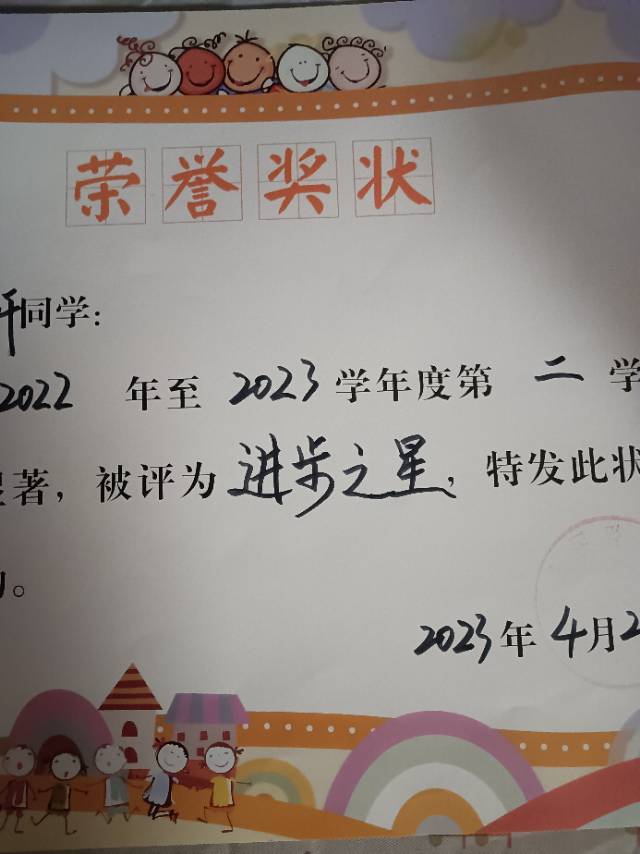 荣誉奖状
同学:
2022 年至 2023 学年度第 二 学
著，被评为 进步之星，特发此状
。
2023年 4月2